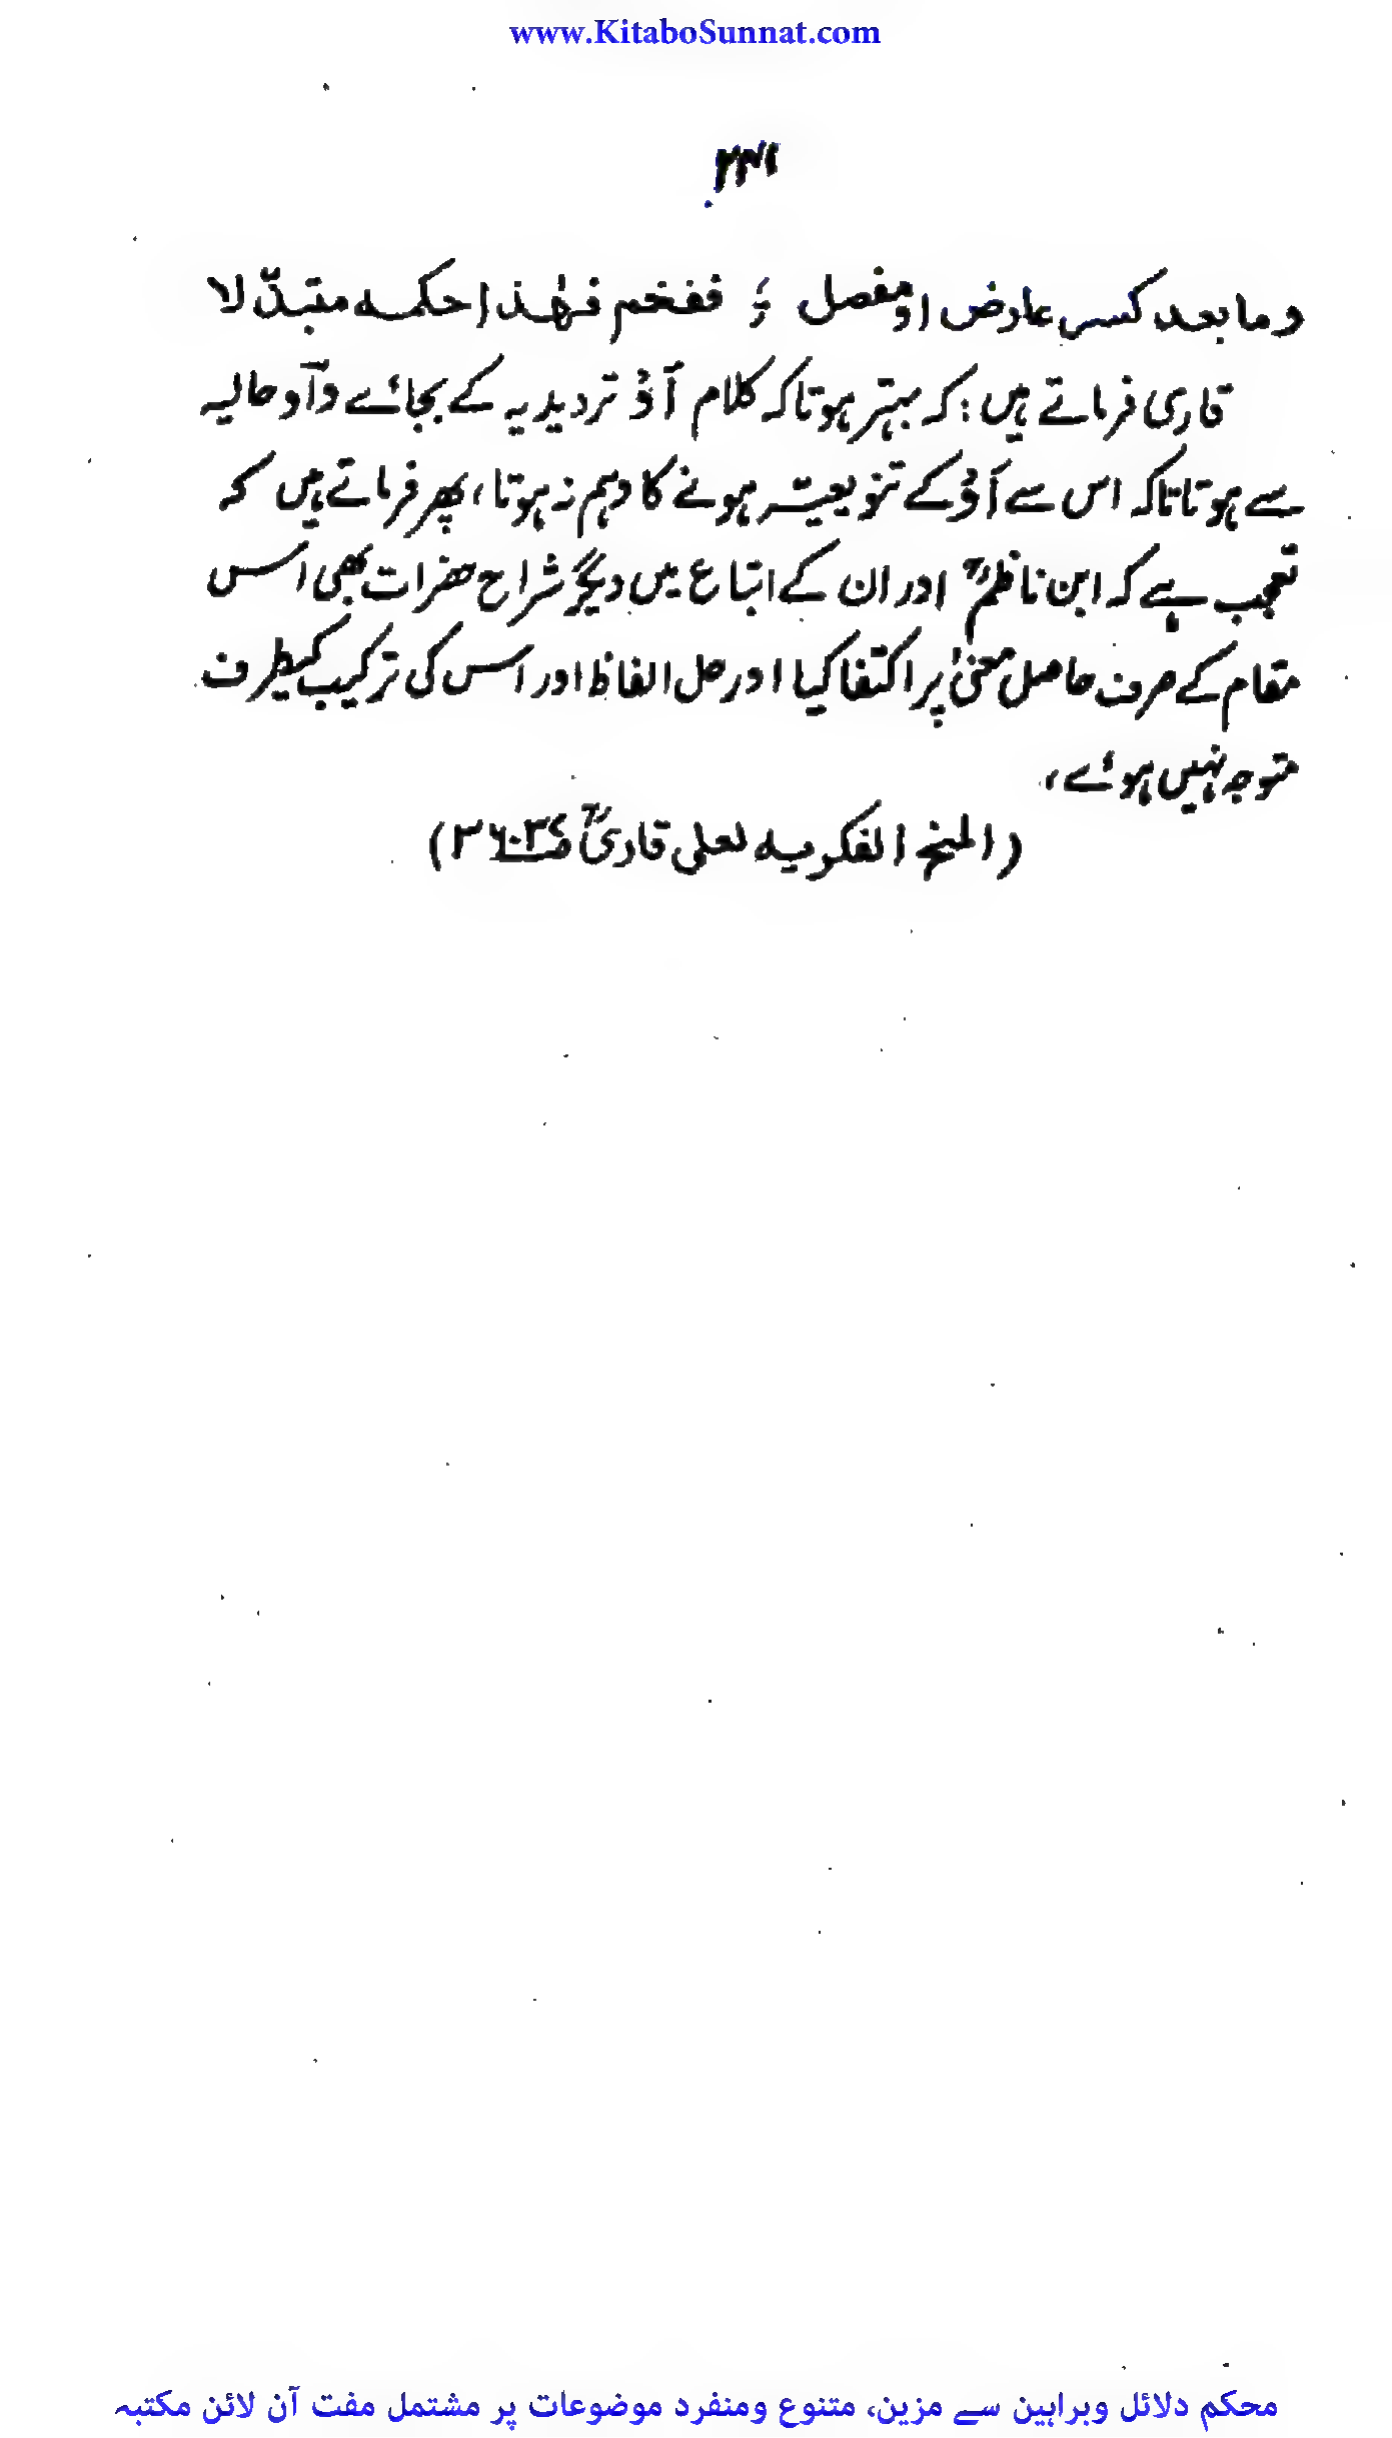 www.KitaboSunnat.com
وما بعد كسر عارض او مفصل ؛ ففخم فهٰذا حكمه متبدّلا
قاری فرماتے ہیں : کہ بہتر ہوتا کہ کلام آؤ تردیدیہ کے بجائے وآو حالیہ
سے ہوتا تاکہ اس سے آؤ کے تنویعیہ ہونے کا وہم نہ ہوتا ، پھر فرماتے ہیں کہ
تعجب ہے کہ ابن ناظمؒ اور ان کے اتباع میں دیگر شراح حضرات بھی اس
مقام کے صرف حاصل معنیٰ پر اکتفا کیا اور حل الفاظ اور اس کی ترکیب کیطرف
متوجہ نہیں ہوئے ،
(المنح الفکریہ لعلی قاریؒ
محکم دلائل وبراہین سے مزین، متنوع ومنفرد موضوعات پر مشتمل مفت آن لائن مکتبہ